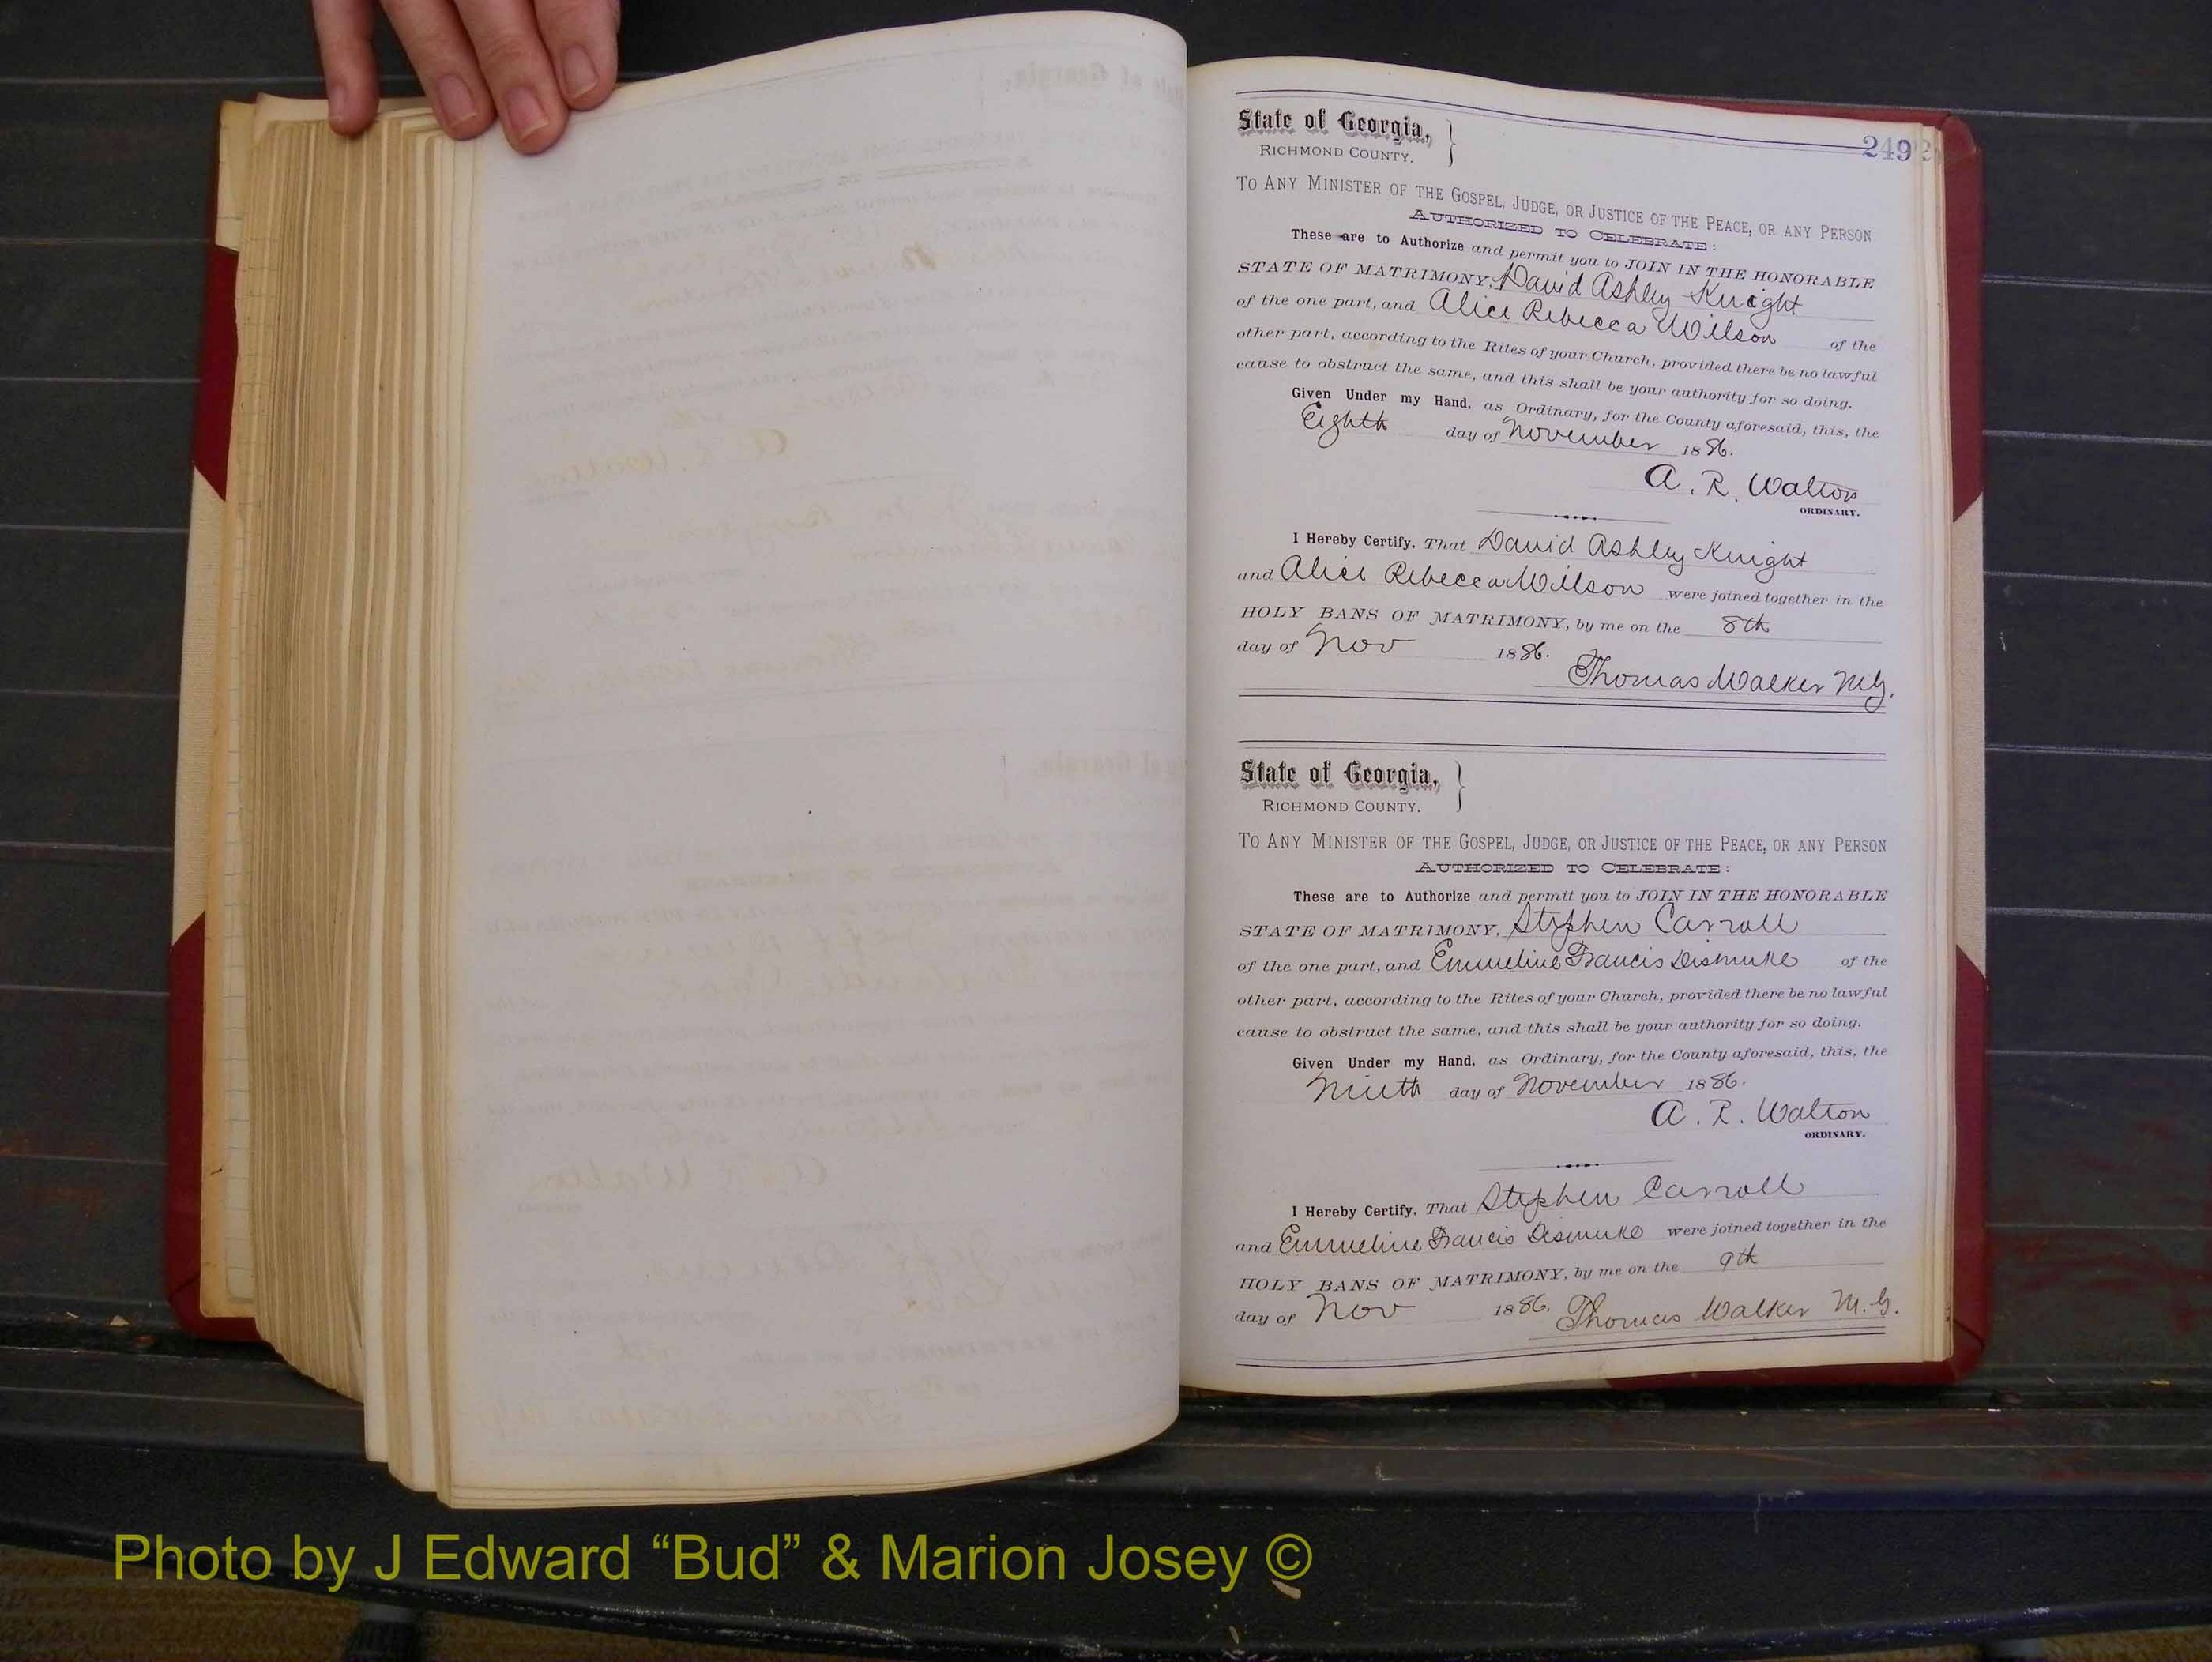 249
State of Georgia,
RICHMOND COUNTY.
TO ANY MINISTER OF THE GOSPEL, JUDGE, OR JUSTICE OF THE PEACE, OR ANY PERSON
AUTHORIZED TO CELEBRATE:
These are to Authorize and permit you to JOIN IN THE HONORABLE
STATE OF MATRIMONY, David Ashley Knight
of the one part, and Alice Rebecca Wilson of the
other part, according to the Rites of your Church, provided there be no lawful
cause to obstruct the same, and this shall be your authority for so doing.
Given Under my Hand, as Ordinary, for the County aforesaid, this, the
Eighth day of November 1886.
A. R. Walton
ORDINARY.
I Hereby Certify, That David Ashley Knight
and Alice Rebecca Wilson were joined together in the
HOLY BANS OF MATRIMONY, by me on the 8th
day of Nov 1886.
Thomas Walker M.G.
State of Georgia,
RICHMOND COUNTY.
TO ANY MINISTER OF THE GOSPEL, JUDGE, OR JUSTICE OF THE PEACE, OR ANY PERSON
AUTHORIZED TO CELEBRATE:
These are to Authorize and permit you to JOIN IN THE HONORABLE
STATE OF MATRIMONY, Stephen Carroll
of the one part, and Emmeline Francis Dismuke of the
other part, according to the Rites of your Church, provided there be no lawful
cause to obstruct the same, and this shall be your authority for so doing.
Given Under my Hand, as Ordinary, for the County aforesaid, this, the
Ninth day of November 1886.
A. R. Walton
ORDINARY.
I Hereby Certify, That Stephen Carroll
and Emmeline Francis Dismuke were joined together in the
HOLY BANS OF MATRIMONY, by me on the 9th
day of Nov 1886. Thomas Walker M.G.
Photo by J Edward “Bud” & Marion Josey ©